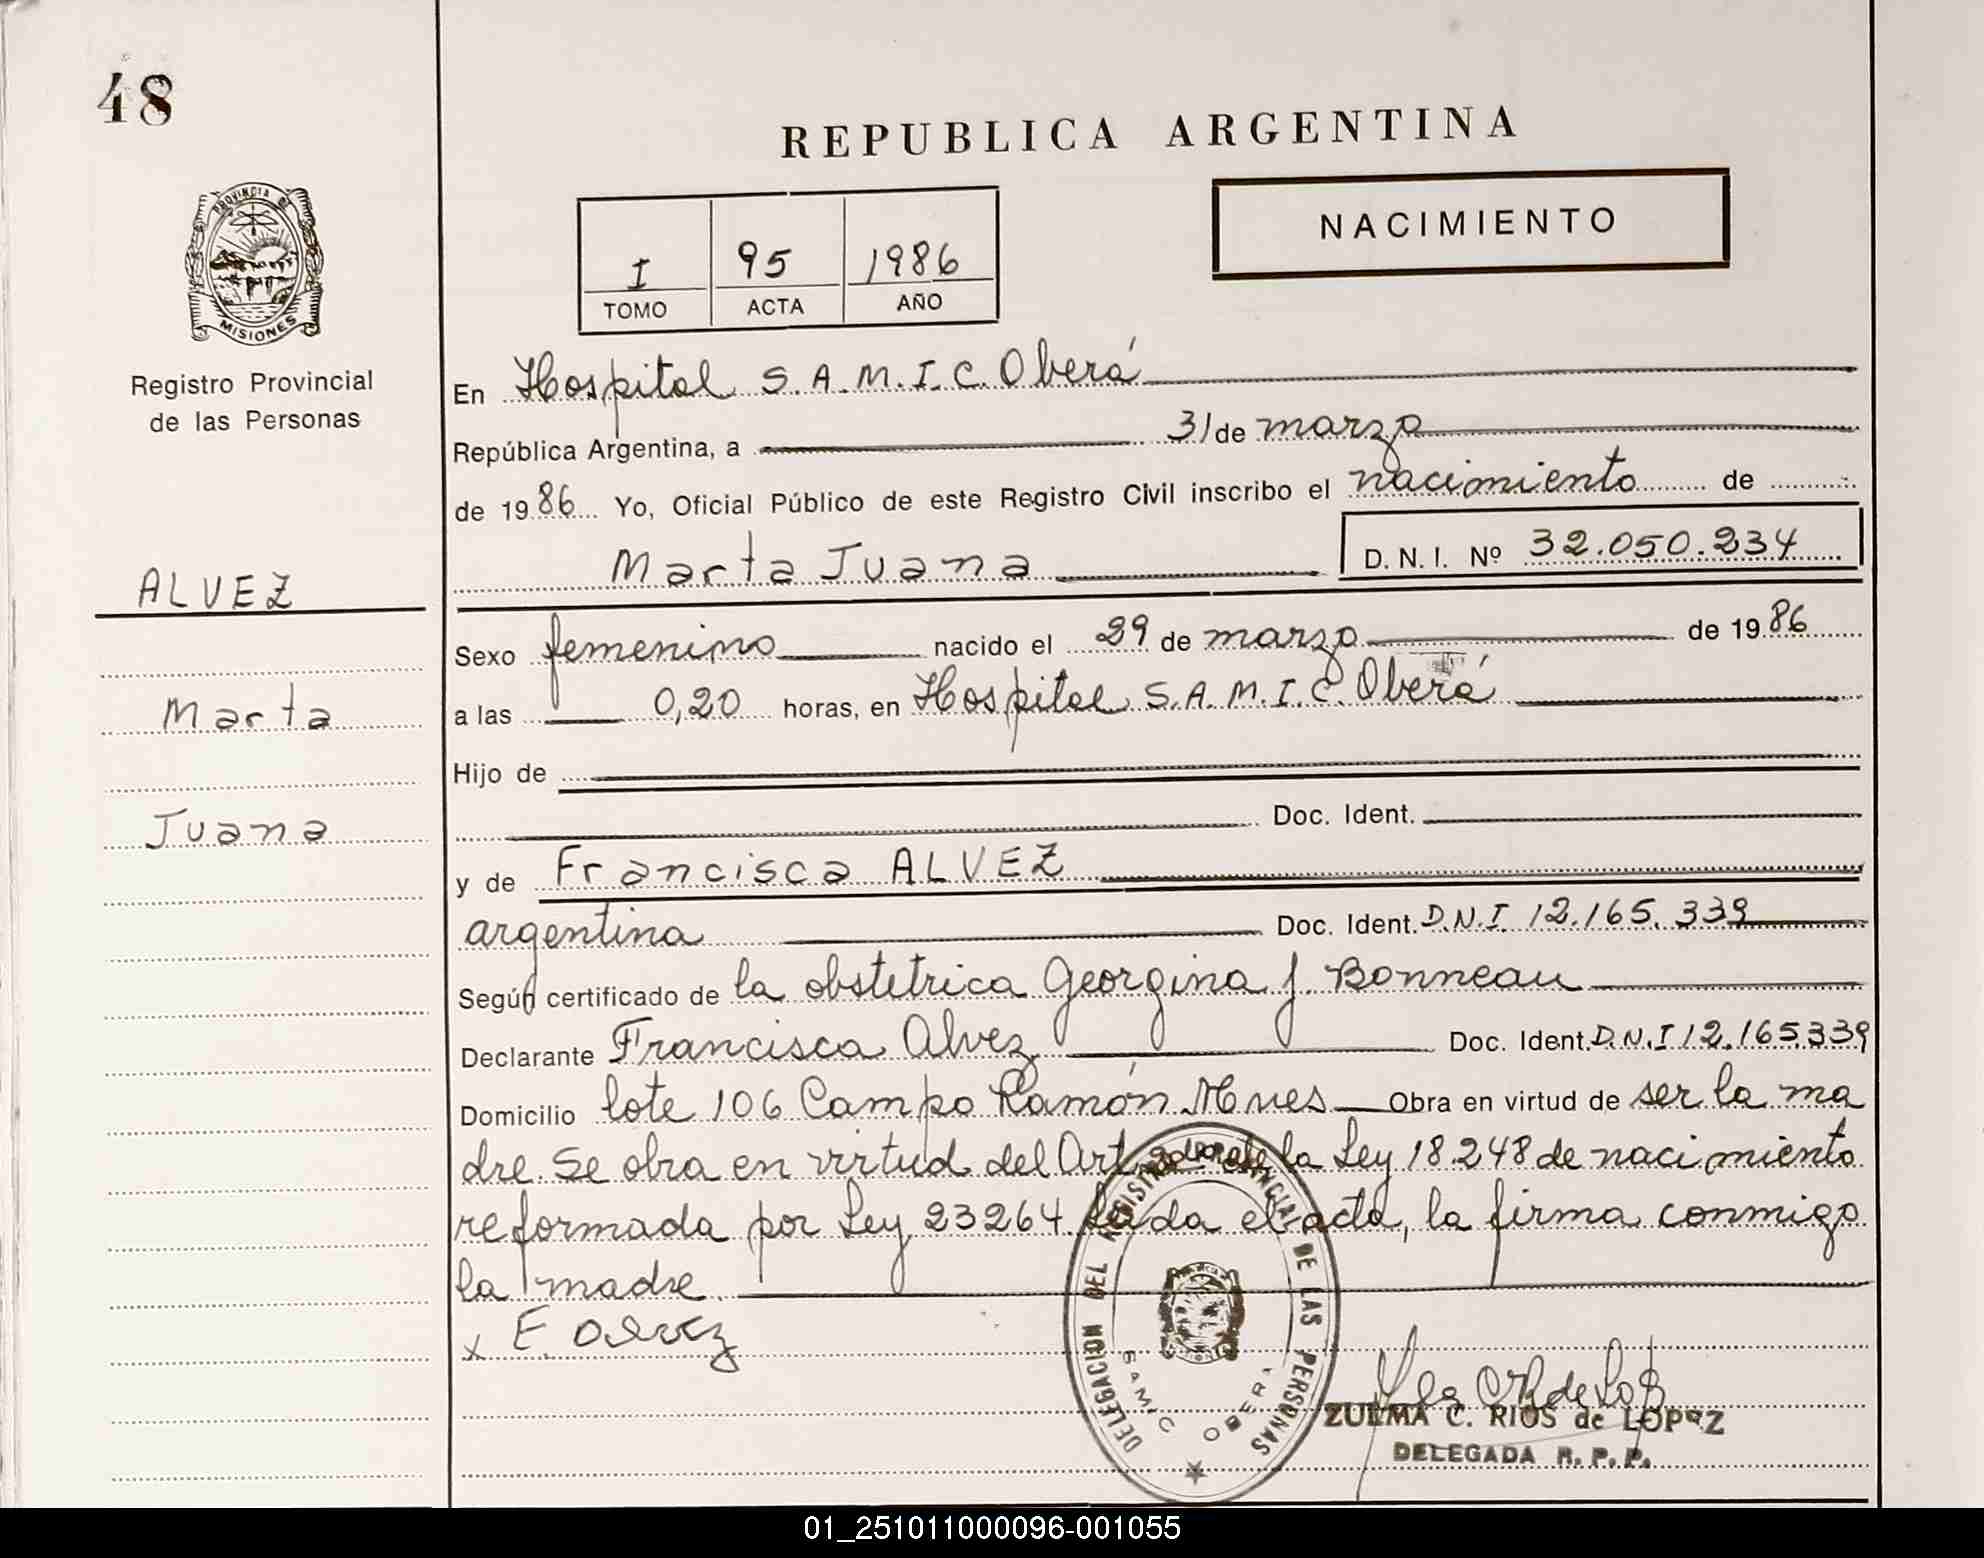 48
REPUBLICA ARGENTINA
PROVINCIA DE
MISIONES
Registro Provincial
de las Personas
I 95 1986
TOMO ACTA AÑO
NACIMIENTO
En Hospital S.A.M.I.C. Oberá
República Argentina, a 31 de marzo
de 1986 Yo, Oficial Público de este Registro Civil inscribo el nacimiento de
Marta Juana D. N. I. Nº 32.050.234
ALVEZ
Marta
Juana
Sexo femenino nacido el 29 de marzo de 1986
a las 0,20 horas, en Hospital S.A.M.I.C. Oberá
Hijo de
Doc. Ident.
y de Francisca ALVEZ
argentina Doc. Ident. D.N.I. 12.165.339
Según certificado de la obstetrica Georgina J. Bonneau
Declarante Francisca Alvez Doc. Ident. D.N.I 12.165.339
Domicilio lote 106 Campo Ramón Mnes Obra en virtud de ser la ma
dre. Se obra en virtud del Art. de la Ley 18.248 de nacimiento
reformada por Ley 23264. Leida el acta, la firma conmigo
la madre
x F. Alvez
DELEGACION DEL REGISTRO PROVINCIAL DE LAS PERSONAS
SAMIC OBERA
ZULMA C. RIOS de LOPEZ
DELEGADA R. P. P.
01_251011000096-001055